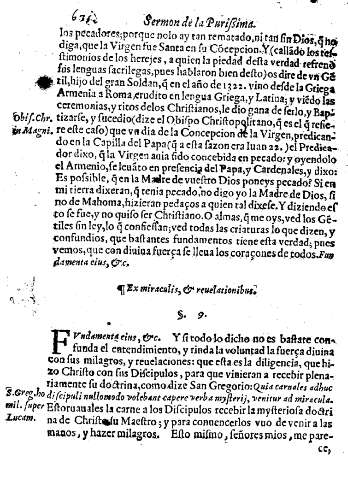 624 Sermon de la Purißima.
los pecadores; porque no lo ay tan rematado, ni tan sin Dios, q̃ no
diga, que la Virgen fue Santa en su Cõcepcion. Y (callãdo los tes-
timonios de los herejes, a quien la piedad desta verdad refrenò
sus lenguas sacrilegas, pues hablaron bien desto) os dirè de vn Gẽ
til, hijo del gran Soldan, q̃ en el año de 1322. vino desde la Griega
Armenia a Roma, erudito en lengua Griega, y Latina; y viẽdo las
ceremonias, y ritos de los Christianos, le dio gana de serlo, y Bap
Obis. Chr. tizarse, y sucedio (dize el Obispo Christopõlitano, q̃ es el q̃ refie-
in Magni. re este caso) que vn dia de la Concepcion de la Virgen, predican-
do en la Capilla del Papa (q̃ a esta sazon era Iuan 22.) el Predica-
dor dixo, q̃ la Virgen auia sido concebida en pecado: y oyendolo
el Armenio, se leuãto en presencia del Papa, y Cardenales, y dixo:
Es possible, q̃ en la Madre de vuestro Dios poneys pecado? Si en
mi tierra dixeran, q̃ tenia pecado, no digo yo la Madre de Dios, si
no de Mahoma, hizieran pedaços a quien tal dixese. Y diziendo es
to se fue, y no quiso ser Christiano. O almas, q̃ me oys, ved los Gẽ-
tiles sin ley, lo q̃ confiessan; ved todas las criaturas lo que dizen, y
confundios, que bastantes fundamentos tiene esta verdad; pues
vemos, que con diuina fuerça se lleua los coraçones de todos. Fun
damenta eius, &c.
¶ Ex miraculis, & reuelationibus.
§. 9.
Fvndamenta eius, &c. Y si todo lo dicho no es bastãte con-
funda el entendimiento, y rinda la voluntad la fuerça diuina
con sus milagros, y reuelaciones: que esta es la diligencia, que hi-
zo Christo con sus Discipulos, para que vinieran a recebir plena-
riamente su doctrina, como dize San Gregorio: Quia carnales adhuc
S. Greg. ho discipuli nullomodo volebant capere verba mysterij, venitur ad miracula.
mil. super Estoruauales la carne a los Discipulos recebir la mysteriosa doctri
Lucam. na de Christo su Maestro; y para conuencerlos vuo de venir a las
manos, y hazer milagros. Esto mismo, señores mios, me pare-
ce,